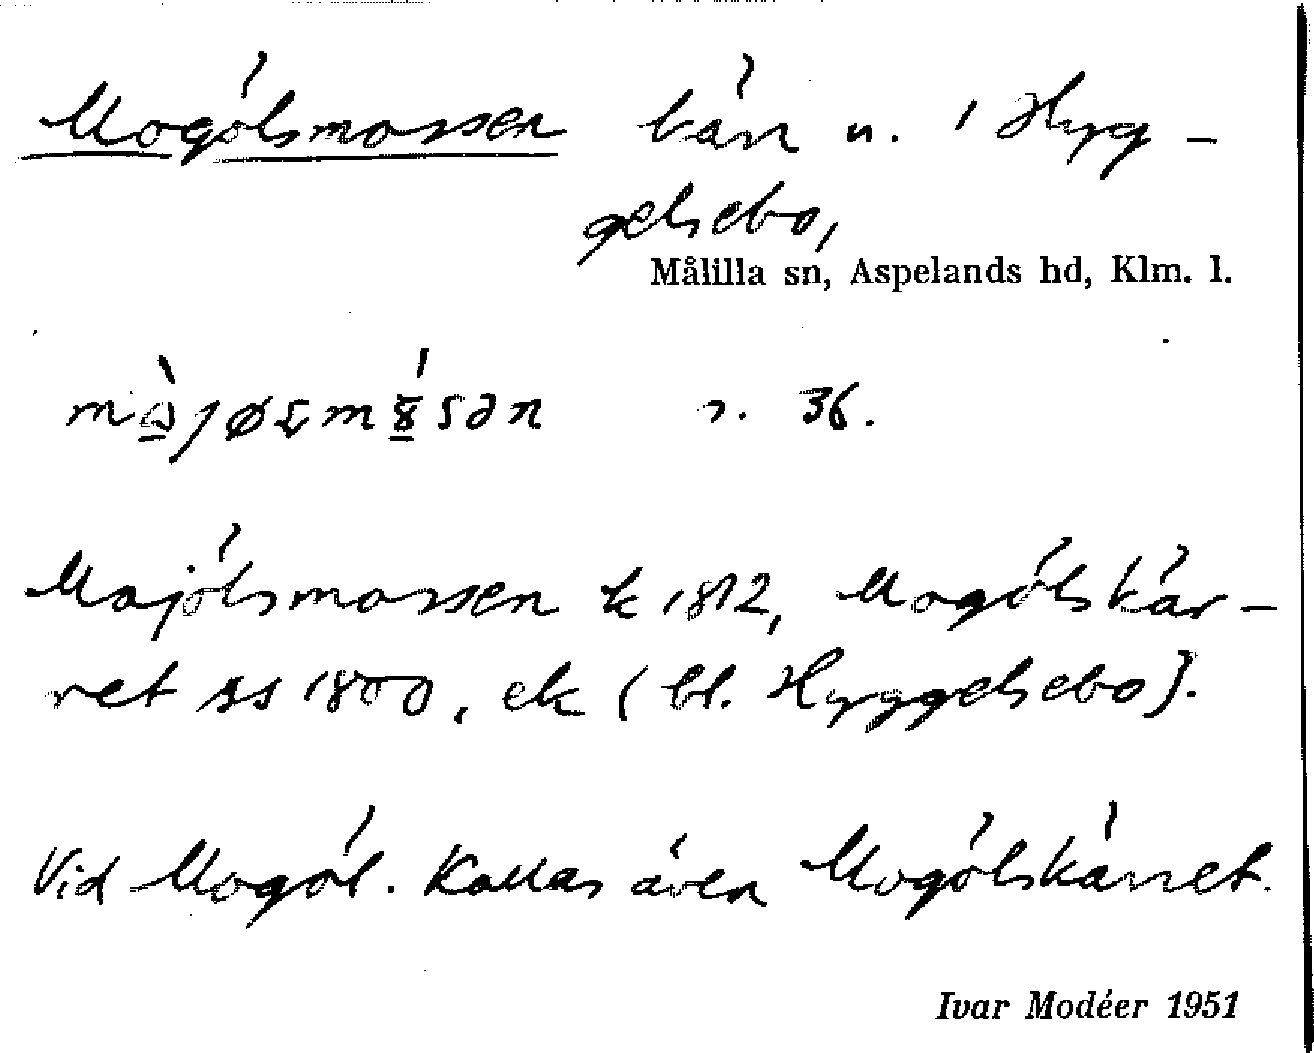 Mogölsmossen kärr n. i Hyg-
gelsebo,
Målilla sn, Aspelands hd, Klm. l.
s. 36.
Majölsmossen k 1812, Mogölskär-
ret ss 1800, ek (bl. Hyggelsebo).
Vid Mogöl. Kallas även Mogölskärret.
Ivar Modéer 1951